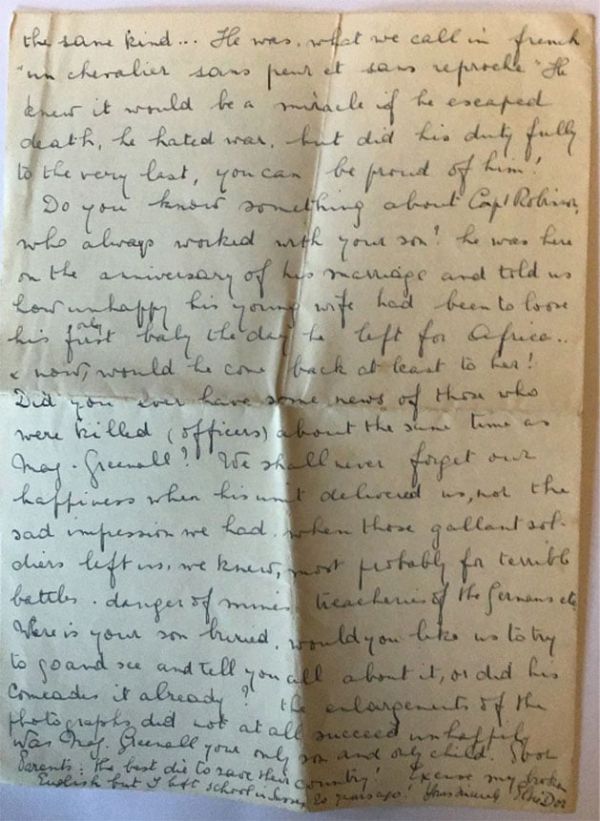 the same kind... He was, what we call in french
"un chevalier sans peur et sans reproche" He
knew it would be a miracle if he escaped
death, he hated war, but did his duty fully
to the very last, you can be proud of him!
Do you know something about Capt Robinson,
who always worked with your son? he was here
on the anniversary of his marriage and told us
how unhappy his young wife had been to loose
his only first baby the day he left for Africa..
& now, would he come back at least to her!
Did you ever have some news of those who
were killed (officers) about the same time as
Maj. Greenall? We shall never forget our
happiness when his unit delivered us, nor the
sad impression we had when those gallant sol-
diers left us, we knew, most probably for terrible
battles. danger of mines, treacheries of the Germans etc
Were is your son buried, would you like us to try
to go and see and tell you all about it, or did his
comrades it already? the enlargements of the
photographs did not at all succeed unhappily
Was Maj. Greenall your only son and only child. Poor
Parents: the best die to save their country! Excuse my broken
English but I left school in 20 years ago! Yours sincerely